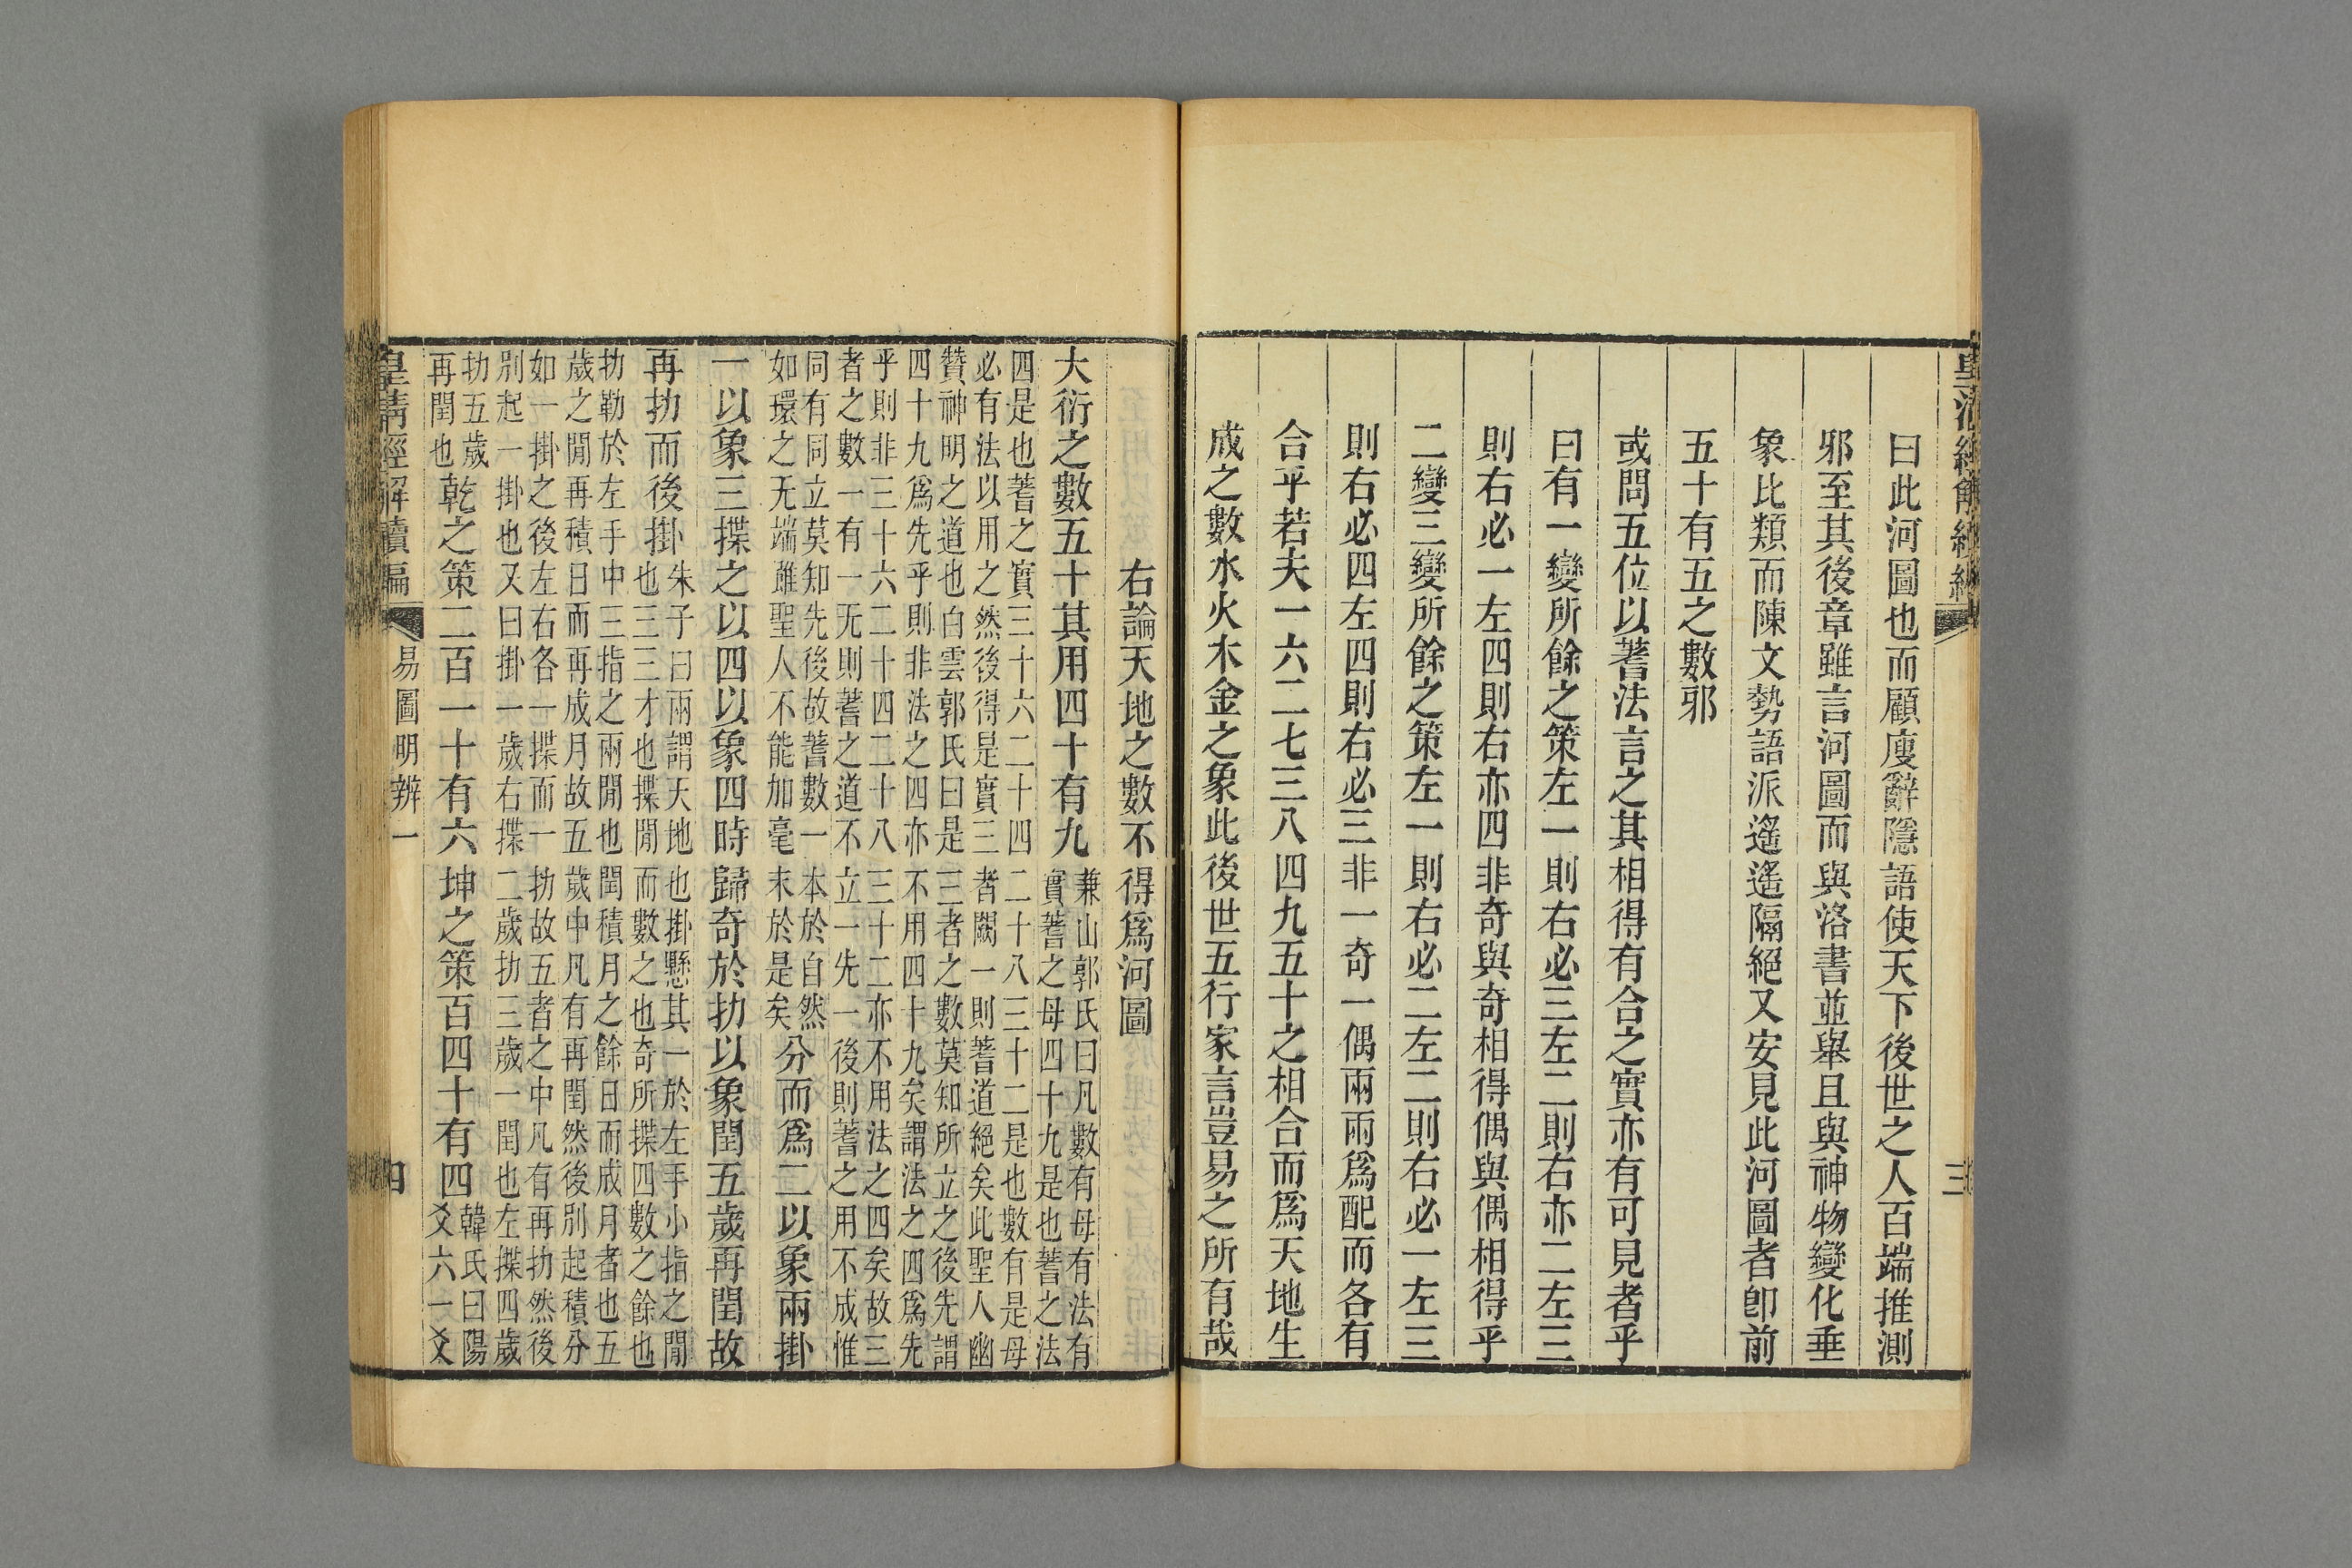 曰此河圖也而顧廋辭隱語使天下後世之人百端推測
邪至其後章雖言河圖而與洛書並舉且與神物變化垂
象比類而陳文勢語派遙遙隔絕又安見此河圖者卽前
五十有五之數邪
或問五位以蓍法言之其相得有合之實亦有可見者乎
曰有一變所餘之策左一則右必三左二則右亦二左三
則右必一左四則右亦四非奇與奇相得偶與偶相得乎
二變三變所餘之策左一則右必二左二則右必一左三
則右必四左四則右必三非一奇一偶兩兩爲配而各有
合乎若夫一六二七三八四九五十之相合而爲天地生
成之數水火木金之象此後世五行家言豈易之所有哉
右論天地之數不得爲河圖
大衍之數五十其用四十有九
兼山郭氏曰凡數有母有法有
實蓍之母四十九是也蓍之法
四是也蓍之實三十六二十四二十八三十二是也數有是母
必有法以用之然後得是實三者闕一則蓍道絕矣此聖人幽
贊神明之道也白雲郭氏曰是三者之數莫知所立之後先謂
四十九爲先乎則非法之四亦不用四十九矣謂法之四爲先
乎則非三十六二十四二十八三十二亦不用法之四矣故三
者之數一有一无則蓍之道不立一先一後則蓍之用不成惟
同有同立莫知先後故蓍數一本於自然
如環之无端雖聖人不能加毫末於是矣
分而爲二以象兩掛
一以象三揲之以四以象四時歸奇於扐以象閏五歲再閏故
再扐而後掛
朱子曰兩謂天地也掛懸其一於左手小指之閒
也三三才也揲閒而數之也奇所揲四數之餘也
扐勒於左手中三指之兩閒也閏積月之餘日而成月者也五
歲之閒再積日而再成月故五歲中凡有再閏然後別起積分
如一掛之後左右各一揲而一扐故五者之中凡有再扐然後
別起一掛也又曰掛一歲右揲二歲扐三歲一閏也左揲四歲
扐五歲
再閏也
乾之策二百一十有六坤之策百四十有四
韓氏曰陽
爻六一爻
皇清經解續編
易圖明辨一
四
三